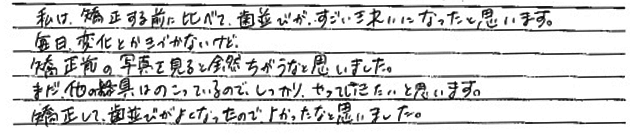 私は、矯正する前に比べて、歯並びが、すごいきれいになったと思います。
毎日、変化とかきづかないけど、
矯正前の写真を見ると全然ちがうなと思いました。
まだ他の器具はのこっているので、しっかり、やっていきたいと思います。
矯正して、歯並びがよくなったのでよかったなと思いました。